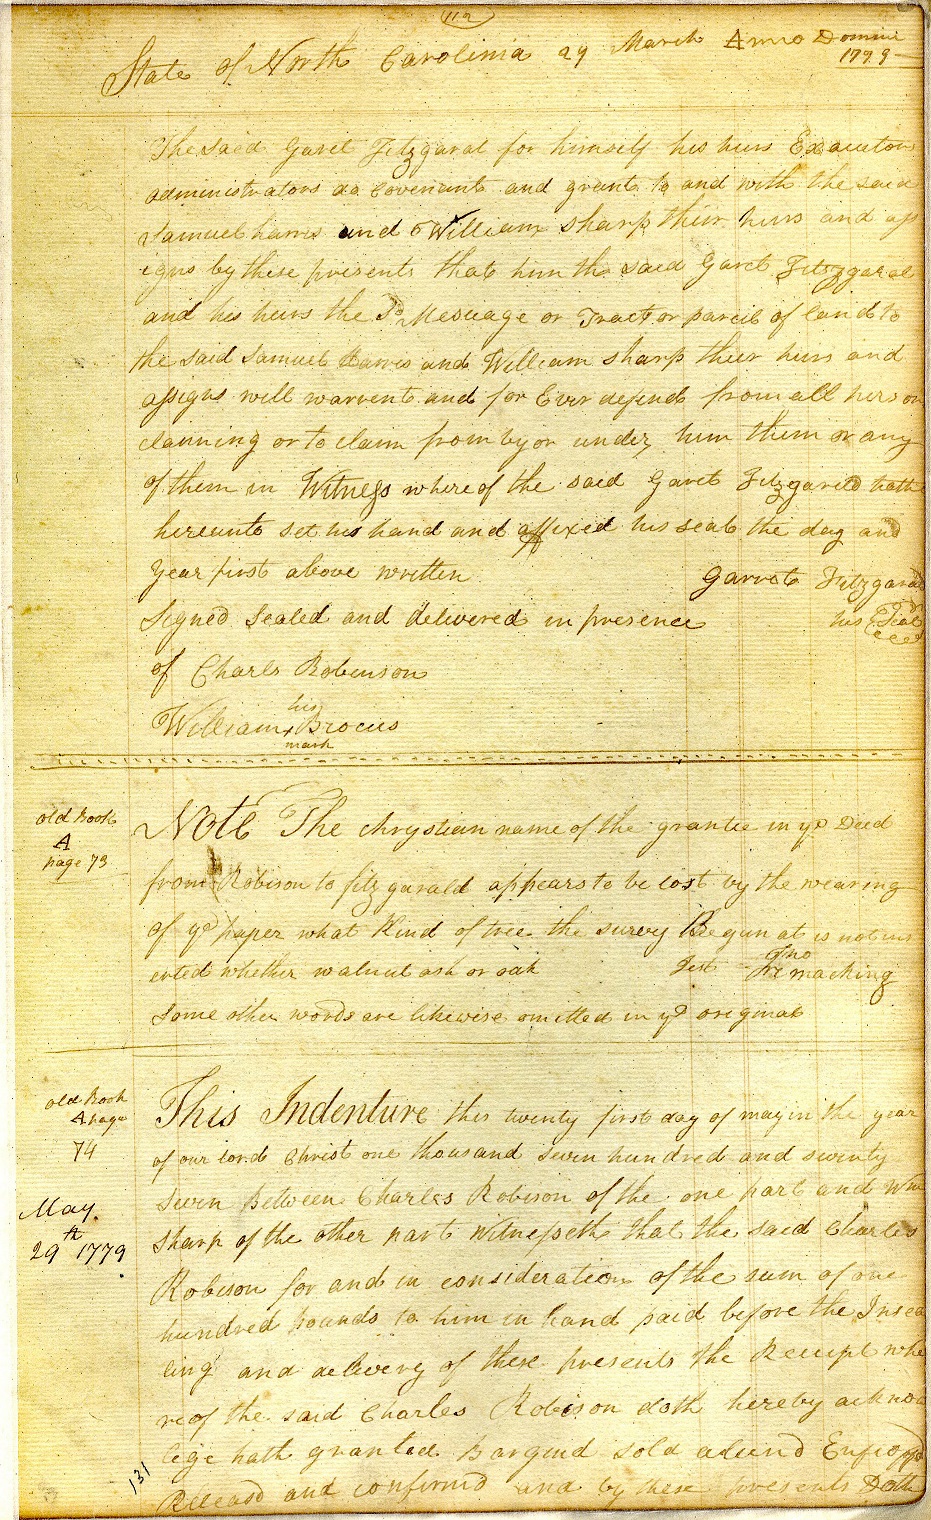 112
State of North Carolinia 29 March Anno Domini
1779
The said Garet Fitzgaral for himself his heirs Executors
administrators do Covenant and grant to and with the said
Samuel harris and William sharp their heirs and ass
igns by these presents that him the said Garet Fitszgaral
and his heirs the Sd Mesuage or Tract or parcil of land to
the said Samuel Harris and William sharp their heirs and
assigns will warrent and for Ever defend from all
claiming or to claim from by or under him them or any
of them in Witness whereof the said Garet Fitzgareld hath
hereunto set his hand and affixed his seal the day and
year first above written
Garret Fitzgarad
Signed Sealed and delivered in presence
his Seal
of Charls Robinson
his
William x Brocus
mark
old Book
A
page 73
Note The chrystian name of the grantee in yd Deed
from Robison to fitzgarald appears to be lost by the wearing
of yd paper what Kind of tree the survey Begun at is not ins
erted whether walnut ash or oak
Test Jno
macking
Some other words are likewise omitted in yd original
old Book
A page
74
May
29th 1779
This Indenture this twenty first day of may in the year
of our lord Christ one thousand seven hundred and seventy
Seven Between Charles Robison of the one part and Wm
Sharp of the other part Witnesseth that the said Charles
Robison for and in consideration of the sum of one
hundred pounds to him in hand paid before the Insea
ling and delivery of these presents the Receipt whe
reof the said Charles Robison doth hereby acknow
lege hath granted Bargind sold aliend Enfeoffd
Released and confirmd and by these presents Doth
131